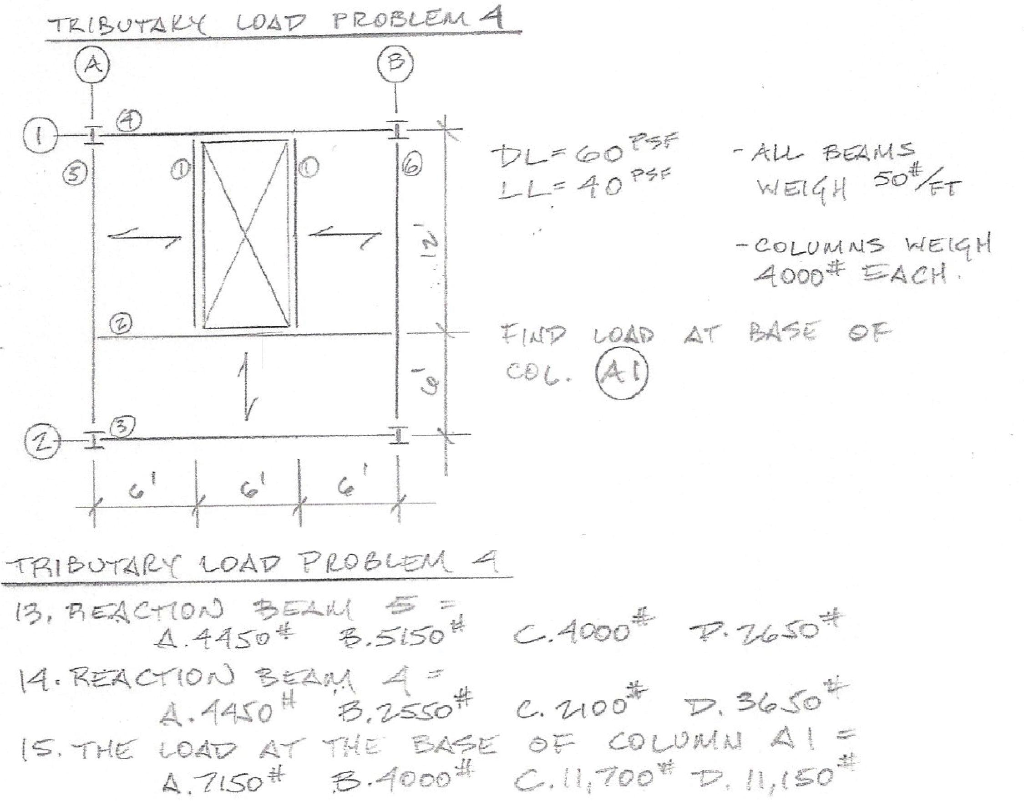 TRIBUTARY LOAD PROBLEM 4
A B
1 4
5 1 1 6
DL=60 PSF
LL=40 PSF
-ALL BEAMS
WEIGH 50#/FT
-COLUMNS WEIGH
4000# EACH.
12'
2
FIND LOAD AT BASE OF
COL. A1
6'
2 3
6' 6' 6'
TRIBUTARY LOAD PROBLEM 4
13. REACTION BEAM 5 =
A. 4450# B. 5150# C. 4000# D. 2650#
14. REACTION BEAM 4 =
A. 4450# B. 2550# C. 2100# D. 3650#
15. THE LOAD AT THE BASE OF COLUMN A1 =
A. 7150# B. 4000# C. 11,700# D. 11,150#